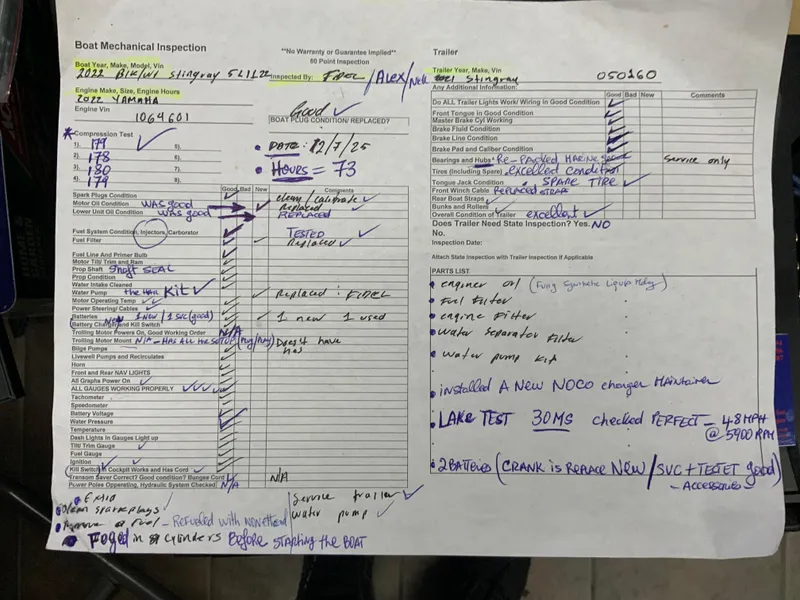 Boat Mechanical Inspection
**No Warranty or Guarantee Implied**
80 Point Inspection
Boat Year, Make, Model, Vin
2022 Blk/Wt Stingray
Inspected By: FIDEL / Alex /
Engine Make, Size, Engine Hours
2022 YAMAHA
Engine Vin
1064601
Good ✓
BOAT PLUG CONDITION/ REPLACED?
*Compression Test ✓
1). 179 5).
2). 178 6).
3). 180 7).
4). 179 8).
• DATE: 12/7/25
• HOURS = 73
Good Bad New Comments
Spark Plugs Condition clean / calibrate ✓
Motor Oil Condition WAS good Replaced ✓
Lower Unit Oil Condition was good REPLACED
Fuel System Condition, Injectors, Carborator TESTED ✓
Fuel Filter Replaced ✓
Fuel Line And Primer Bulb
Motor Tilt/ Trim and Ram
Prop Shaft Shaft SEAL
Prop Condition
Water Intake Cleaned
Water Pump Kit ✓ Replaced : FIDEL
Motor Operating Temp
Power Steering/ Cables
Batteries 1 New / 1 SVC (good) 1 new 1 used
Battery Charger and Kill Switch
Trolling Motor Powers On, Good Working Order N/A
Trolling Motor Mount N/A - HAS ALL the SETUP (Plug/Play) Doesn't have
Bilge Pumps
Livewell Pumps and Recirculates
Horn
Front and Rear NAV LIGHTS
All Graphs Power On
ALL GAUGES WORKING PROPERLY ✓✓✓
Tachometer
Speedometer
Battery Voltage
Water Pressure
Temperature
Dash Lights In Gauges Light up
Tilt/ Trim Gauge
Fuel Gauge
Ignition
Kill Switch in Cockpit Works and Has Cord
Transom Saver Correct? Good condition? Bungee Cord N/A
Power Poles Operating, Hydraulic System Checked N/A
• Clean sparkplugs ✓
• Remove Fuel - Refueled with
• Foged in Cylinders Before STARTING the BOAT
Service trailer ✓
Water pump ✓
Trailer
Trailer Year, Make, Vin
Stingray 050260
Any Additional Information:
Good Bad New Comments
Do ALL Trailer Lights Work/ Wiring in Good Condition
Front Tongue in Good Condition
Master Brake Cyl Working
Brake Fluid Condition
Brake Line Condition
Brake Pad and Caliber Condition
Bearings and Hubs* Re-Packed MARINE Service only
Tires (Including Spare) excellent condition
Tongue Jack Condition • SPARE TIRE ✓
Front Winch Cable REPLACED STRAPS
Rear Boat Straps
Bunks and Rollers
Overall Condition of Trailer excellent ✓
Does Trailer Need State Inspection? Yes. NO
No.
Inspection Date:
Attach State Inspection with Trailer Inspection if Applicable
PARTS LIST
• engine oil (Fully Synthetic Liqui Moly)
• Fuel Filter
• engine Filter
• Water Separator Filter
• Water pump Kit
• installed A New NOCO charger MAINTAINER
• LAKE TEST 30MS checked PERFECT - 48 MPH
@ 5900 RPM
• 2 Batteries (CRANK is Replace New / SVC + TESTET good)
- ACCESSORIES -